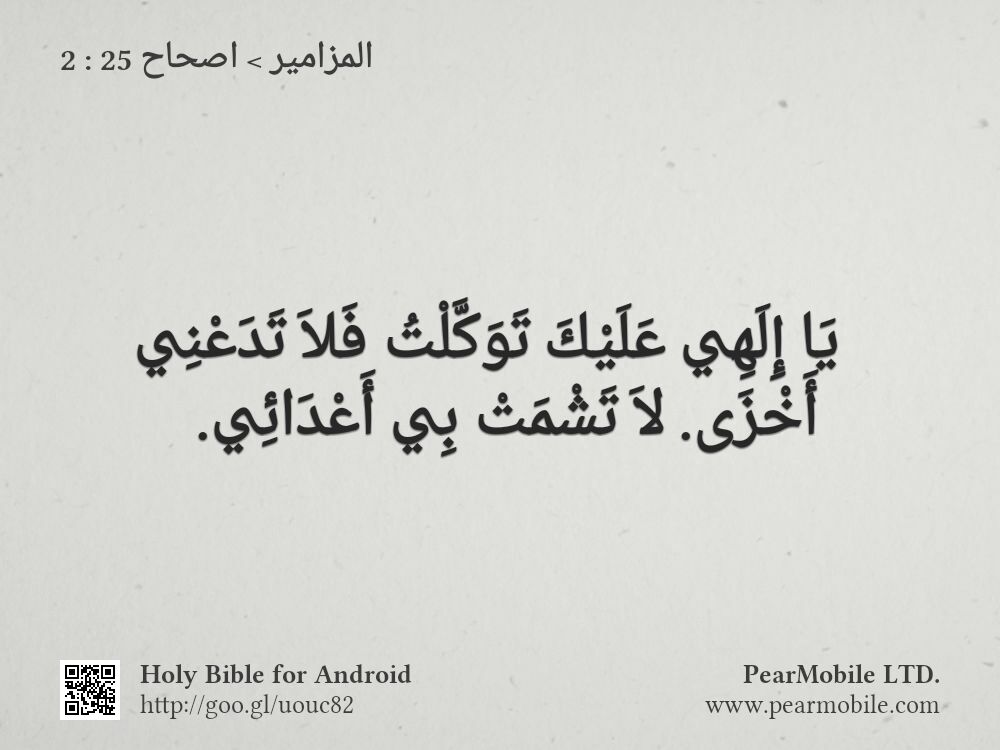 المزامير > اصحاح 25 : 2
يَا إِلَهِي عَلَيْكَ تَوَكَّلْتُ فَلاَ تَدَعْنِي
أَخْزَى. لاَ تَشْمَتْ بِي أَعْدَائِي.
Holy Bible for Android
http://goo.gl/uouc82
PearMobile LTD.
www.pearmobile.com